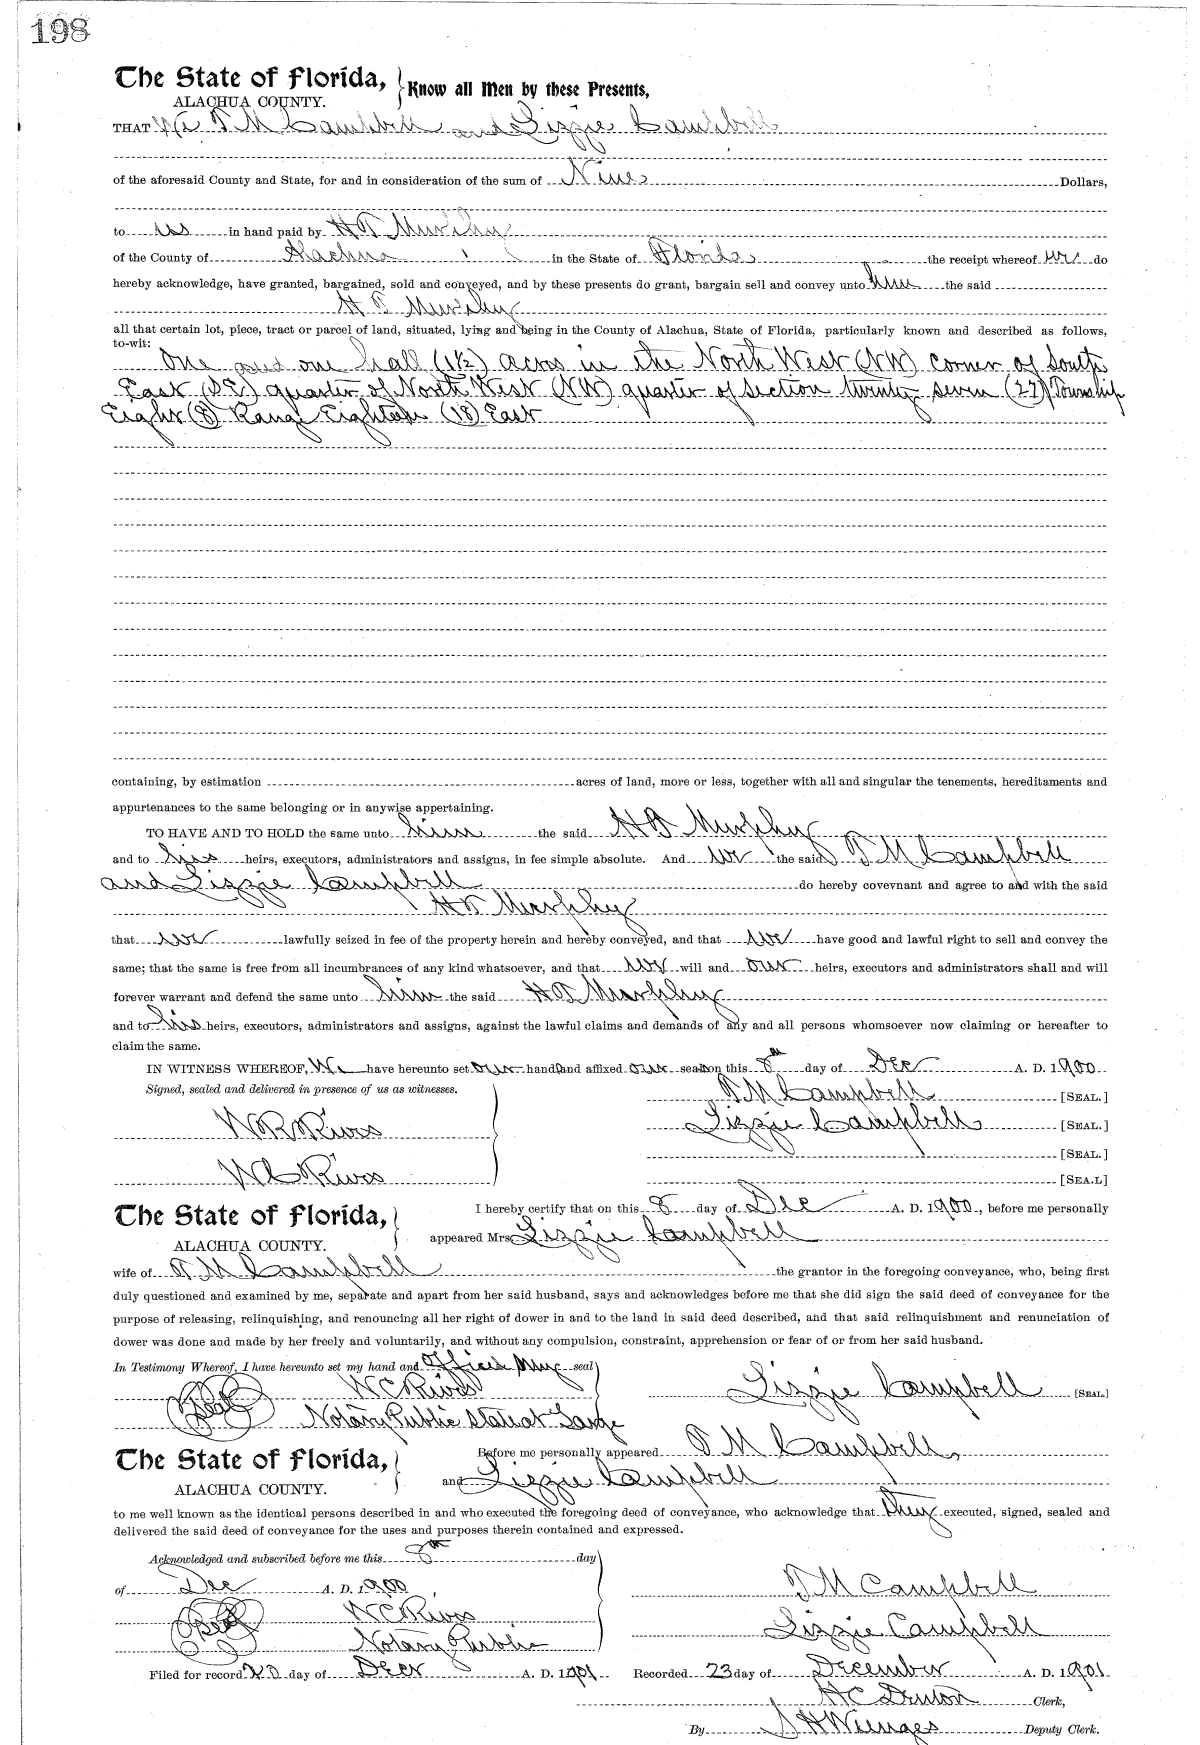 198
The State of Florida, Know all Men by these Presents,
ALACHUA COUNTY.
THAT We T M Campbell and Lizzie Campbell
of the aforesaid County and State, for and in consideration of the sum of Nine Dollars,
to us in hand paid by H T Murphy
of the County of Alachua in the State of Florida the receipt whereof we do
hereby acknowledge, have granted, bargained, sold and conveyed, and by these presents do grant, bargain sell and convey unto him the said
H T Murphy
all that certain lot, piece, tract or parcel of land, situated, lying and being in the County of Alachua, State of Florida, particularly known and described as follows,
to-wit:
One and one half (1½) acres in the North West (NW) corner of South
East (SE) quarter of North West (NW) quarter of Section twenty seven (27) Township
Eight (8) Range Eighteen (18) East
containing, by estimation acres of land, more or less, together with all and singular the tenements, hereditaments and
appurtenances to the same belonging or in anywise appertaining.
TO HAVE AND TO HOLD the same unto him the said H T Murphy
and to his heirs, executors, administrators and assigns, in fee simple absolute. And we the said T M Campbell
and Lizzie Campbell do hereby covevnant and agree to and with the said
H T Murphy
that we lawfully seized in fee of the property herein and hereby conveyed, and that we have good and lawful right to sell and convey the
same; that the same is free from all incumbrances of any kind whatsoever, and that we will and our heirs, executors and administrators shall and will
forever warrant and defend the same unto him the said H T Murphy
and to his heirs, executors, administrators and assigns, against the lawful claims and demands of any and all persons whomsoever now claiming or hereafter to
claim the same.
IN WITNESS WHEREOF, We have hereunto set our hand and affixed our seal on this 8th day of Dec A. D. 1900
Signed, sealed and delivered in presence of us as witnesses. T M Campbell [SEAL.]
W R Rivers Lizzie Campbell [SEAL.]
[SEAL.]
W C Rivers [SEA.L]
The State of Florida, I hereby certify that on this 8 day of Dec A. D. 1900, before me personally
ALACHUA COUNTY. appeared Mrs Lizzie Campbell
wife of T M Campbell the grantor in the foregoing conveyance, who, being first
duly questioned and examined by me, separate and apart from her said husband, says and acknowledges before me that she did sign the said deed of conveyance for the
purpose of releasing, relinquishing, and renouncing all her right of dower in and to the land in said deed described, and that said relinquishment and renunciation of
dower was done and made by her freely and voluntarily, and without any compulsion, constraint, apprehension or fear of or from her said husband.
In Testimony Whereof, I have hereunto set my hand and official seal
Seal W C Rivers Lizzie Campbell [SEAL.]
Notary Public State at Large
The State of Florida, Before me personally appeared T M Campbell,
ALACHUA COUNTY. and Lizzie Campbell
to me well known as the identical persons described in and who executed the foregoing deed of conveyance, who acknowledge that they executed, signed, sealed and
delivered the said deed of conveyance for the uses and purposes therein contained and expressed.
Acknowledged and subscribed before me this 8th day
of Dec A. D. 1900 T M Campbell
Seal W C Rivers Lizzie Campbell
Notary Public
Filed for record day of Decr A. D. 1901 Recorded 23 day of December A. D. 1901
H C Denton Clerk,
By S H Wienges Deputy Clerk.